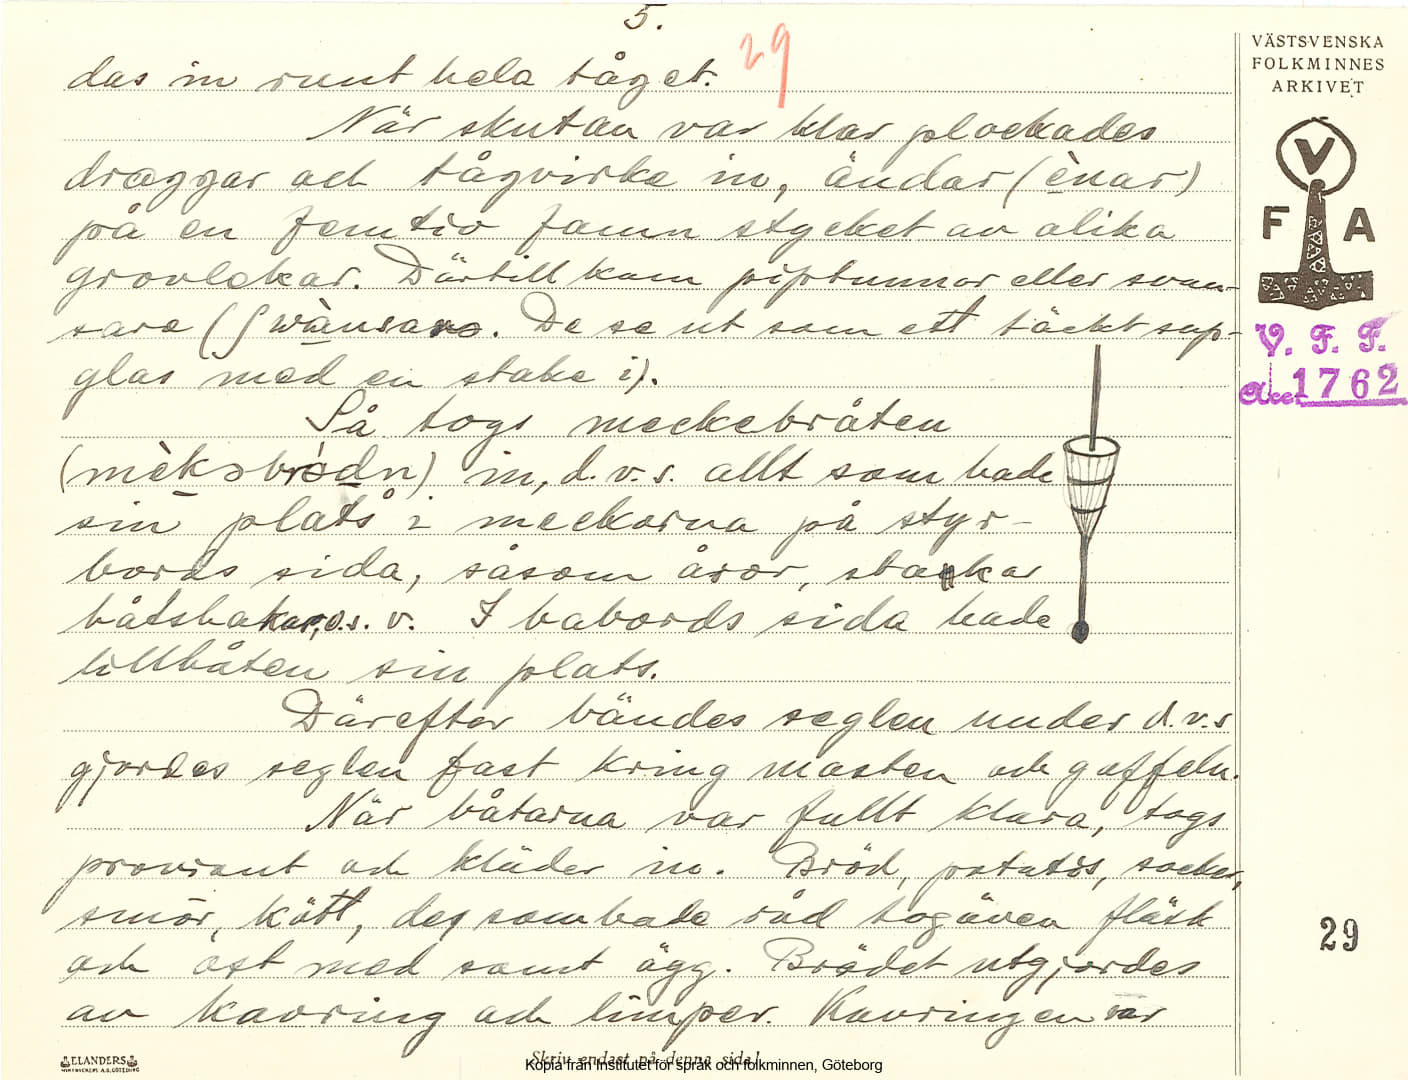 5.
29
das in runt hela tåget.
När skutan var klar plockades
draggar och tågvirke in, ändar (ènar)
på en femtio famn stycket av olika
grovlekar. Därtill kom piptunnor eller svan-
sare (ʃwànsarə. De se ut som ett täckt sup-
glas med en stake i).
Så togs meckebråten
(mèkəbródn) in, d.v.s. allt som hade
sin plats i meckorna på styr-
bords sida, såsom åror, stackar
båtshakar, o.s.v. I babords sida hade
lillbåten sin plats.
Därefter bändes seglen under d.v.s
gjordes seglen fast kring masten och gaffeln.
När båtarna var fullt klara, togs
proviant och kläder in. Bröd, potatis, socker,
smör, kött, dej som hade råd tog även fläsk
och ost med samt ägg. Brödet utgjordes
av kavring och limper. Kavringen var
VÄSTSVENSKA
FOLKMINNES
ARKIVET
V
F A
V. F. F.
Acc. 1762
29
ELANDERS
Skriv endast på denna sida!
Kopia från Institutet för språk och folkminnen, Göteborg